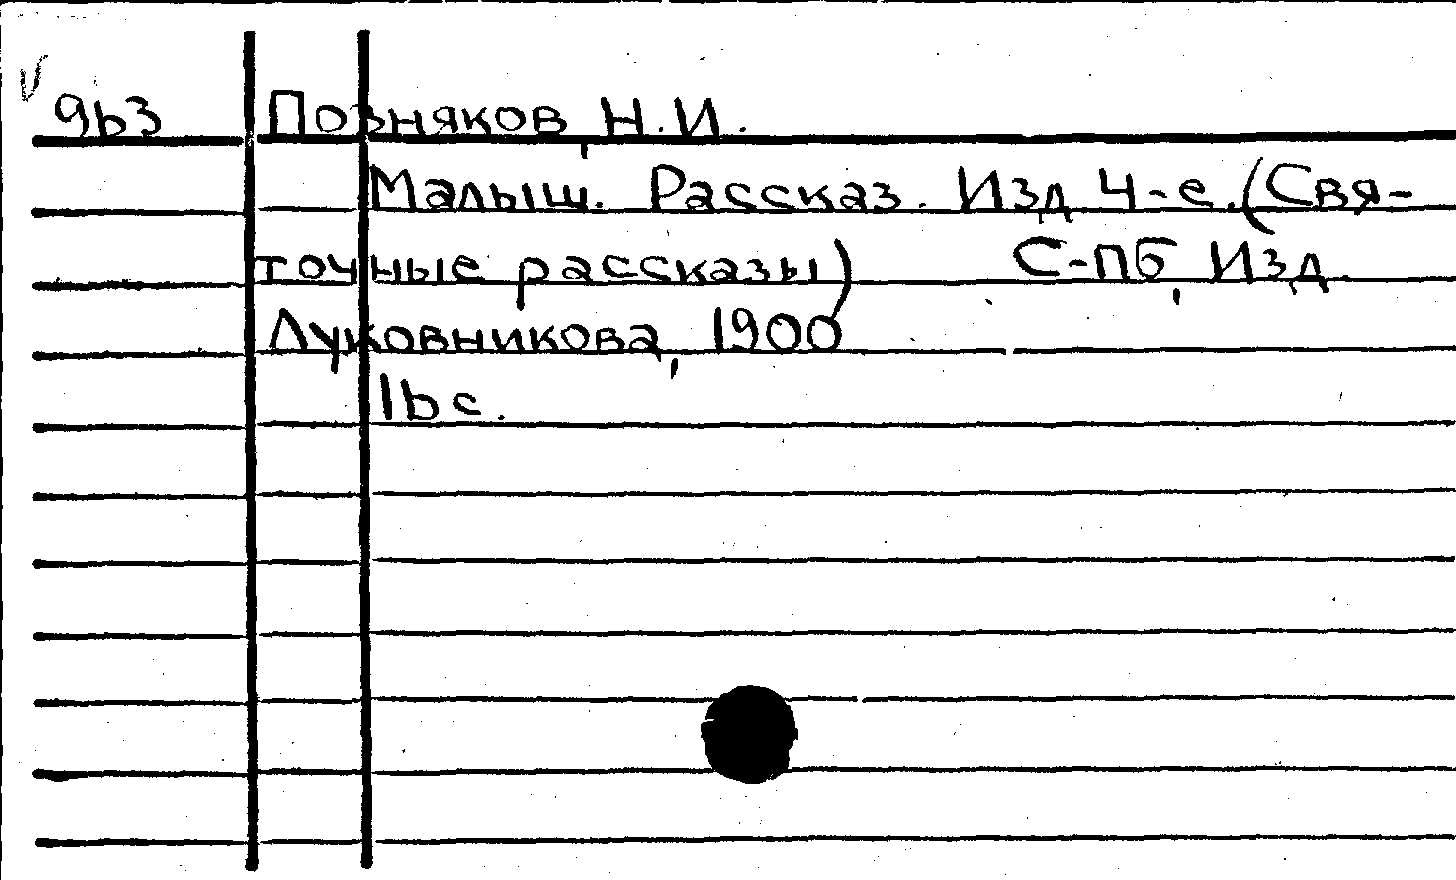 963 Позняков, Н.И.
Малыш. Рассказ. Изд. 4-е. (Свя-
точные рассказы) С-пб, Изд.
Луковникова, 1900
16 с.